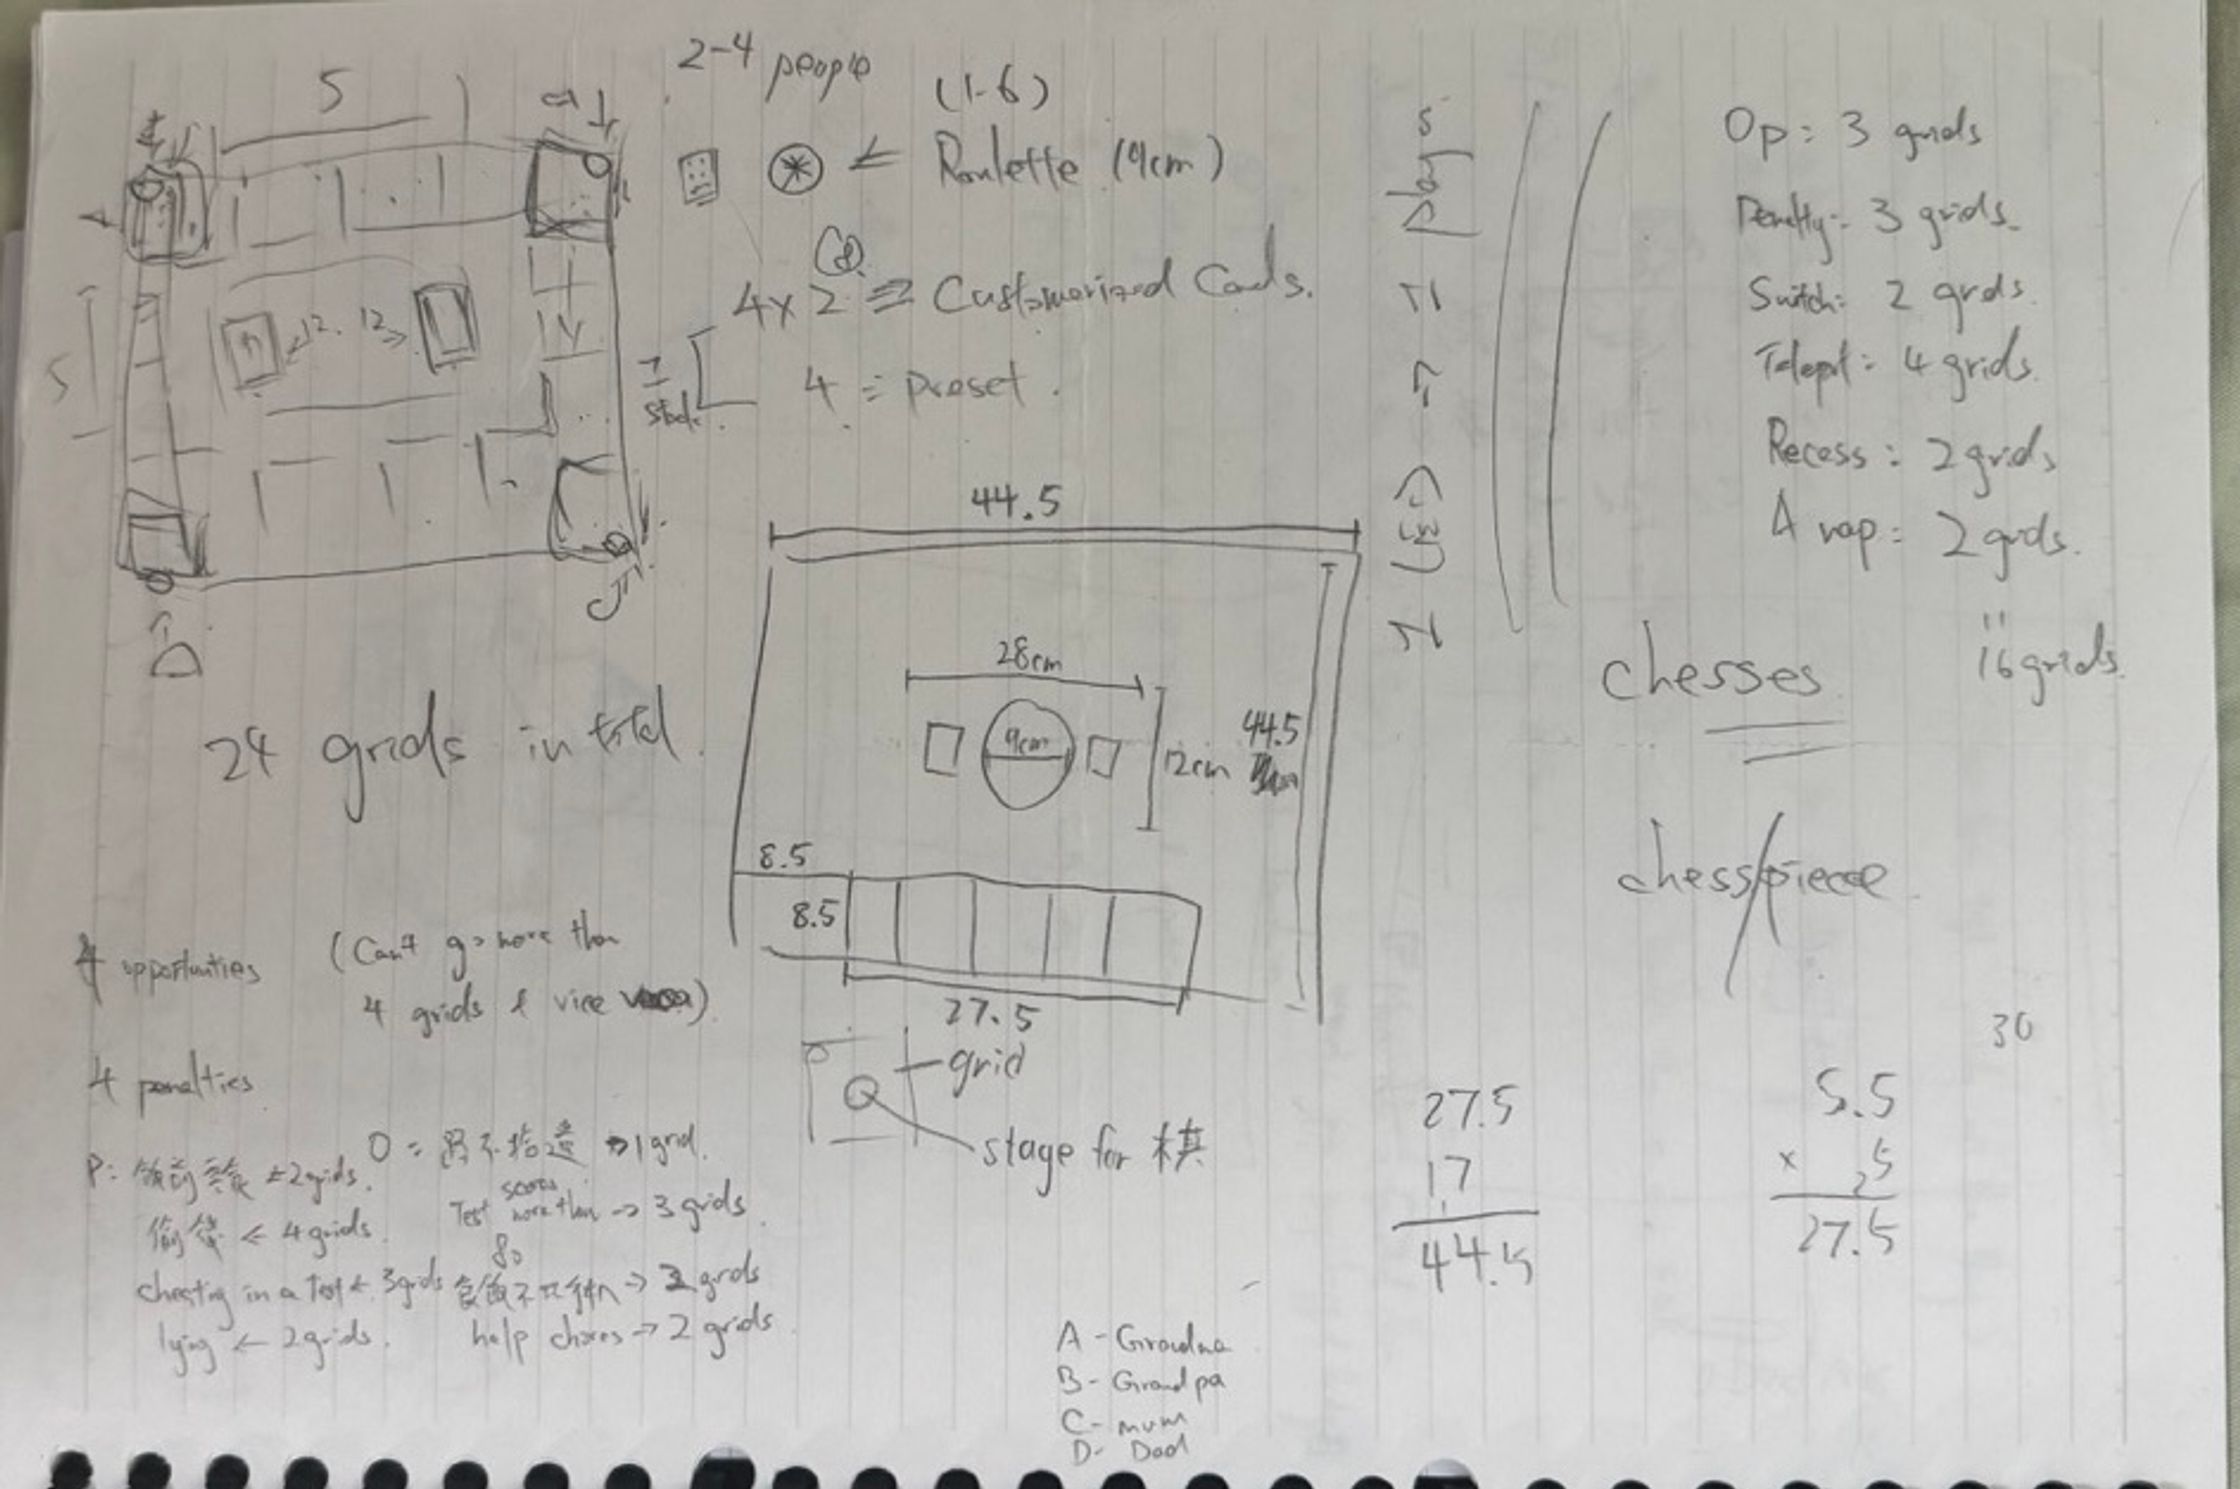 2-4 people
(1-6)
5
Roulette (9cm)
4x2 = Customerized Cards.
4 = preset.
5
12. 12
24 grids in total.
4 opportunities
(Can't go more than
4 grids & vice
4 penalties
P:
← 2 grids.
← 4 grids.
cheating in a Test ← 3 grids
lying ← 2 grids.
O =
→ 1 grid.
Test scores more than 80 → 3 grids
→ 2 grids
help chores → 2 grids
44.5
28cm
9cm
12cm
44.5
8.5
8.5
27.5
grid
stage for 棋
A - Grandma
B - Grandpa
C - mum
D - Dad
Op: 3 grids
Penalty: 3 grids.
Switch: 2 grids.
Telept: 4 grids.
Recess: 2 grids
A nap: 2 grids.
16 grids.
chesses
chess/piece
30
27.5
17
44.5
5.5
x 5
27.5